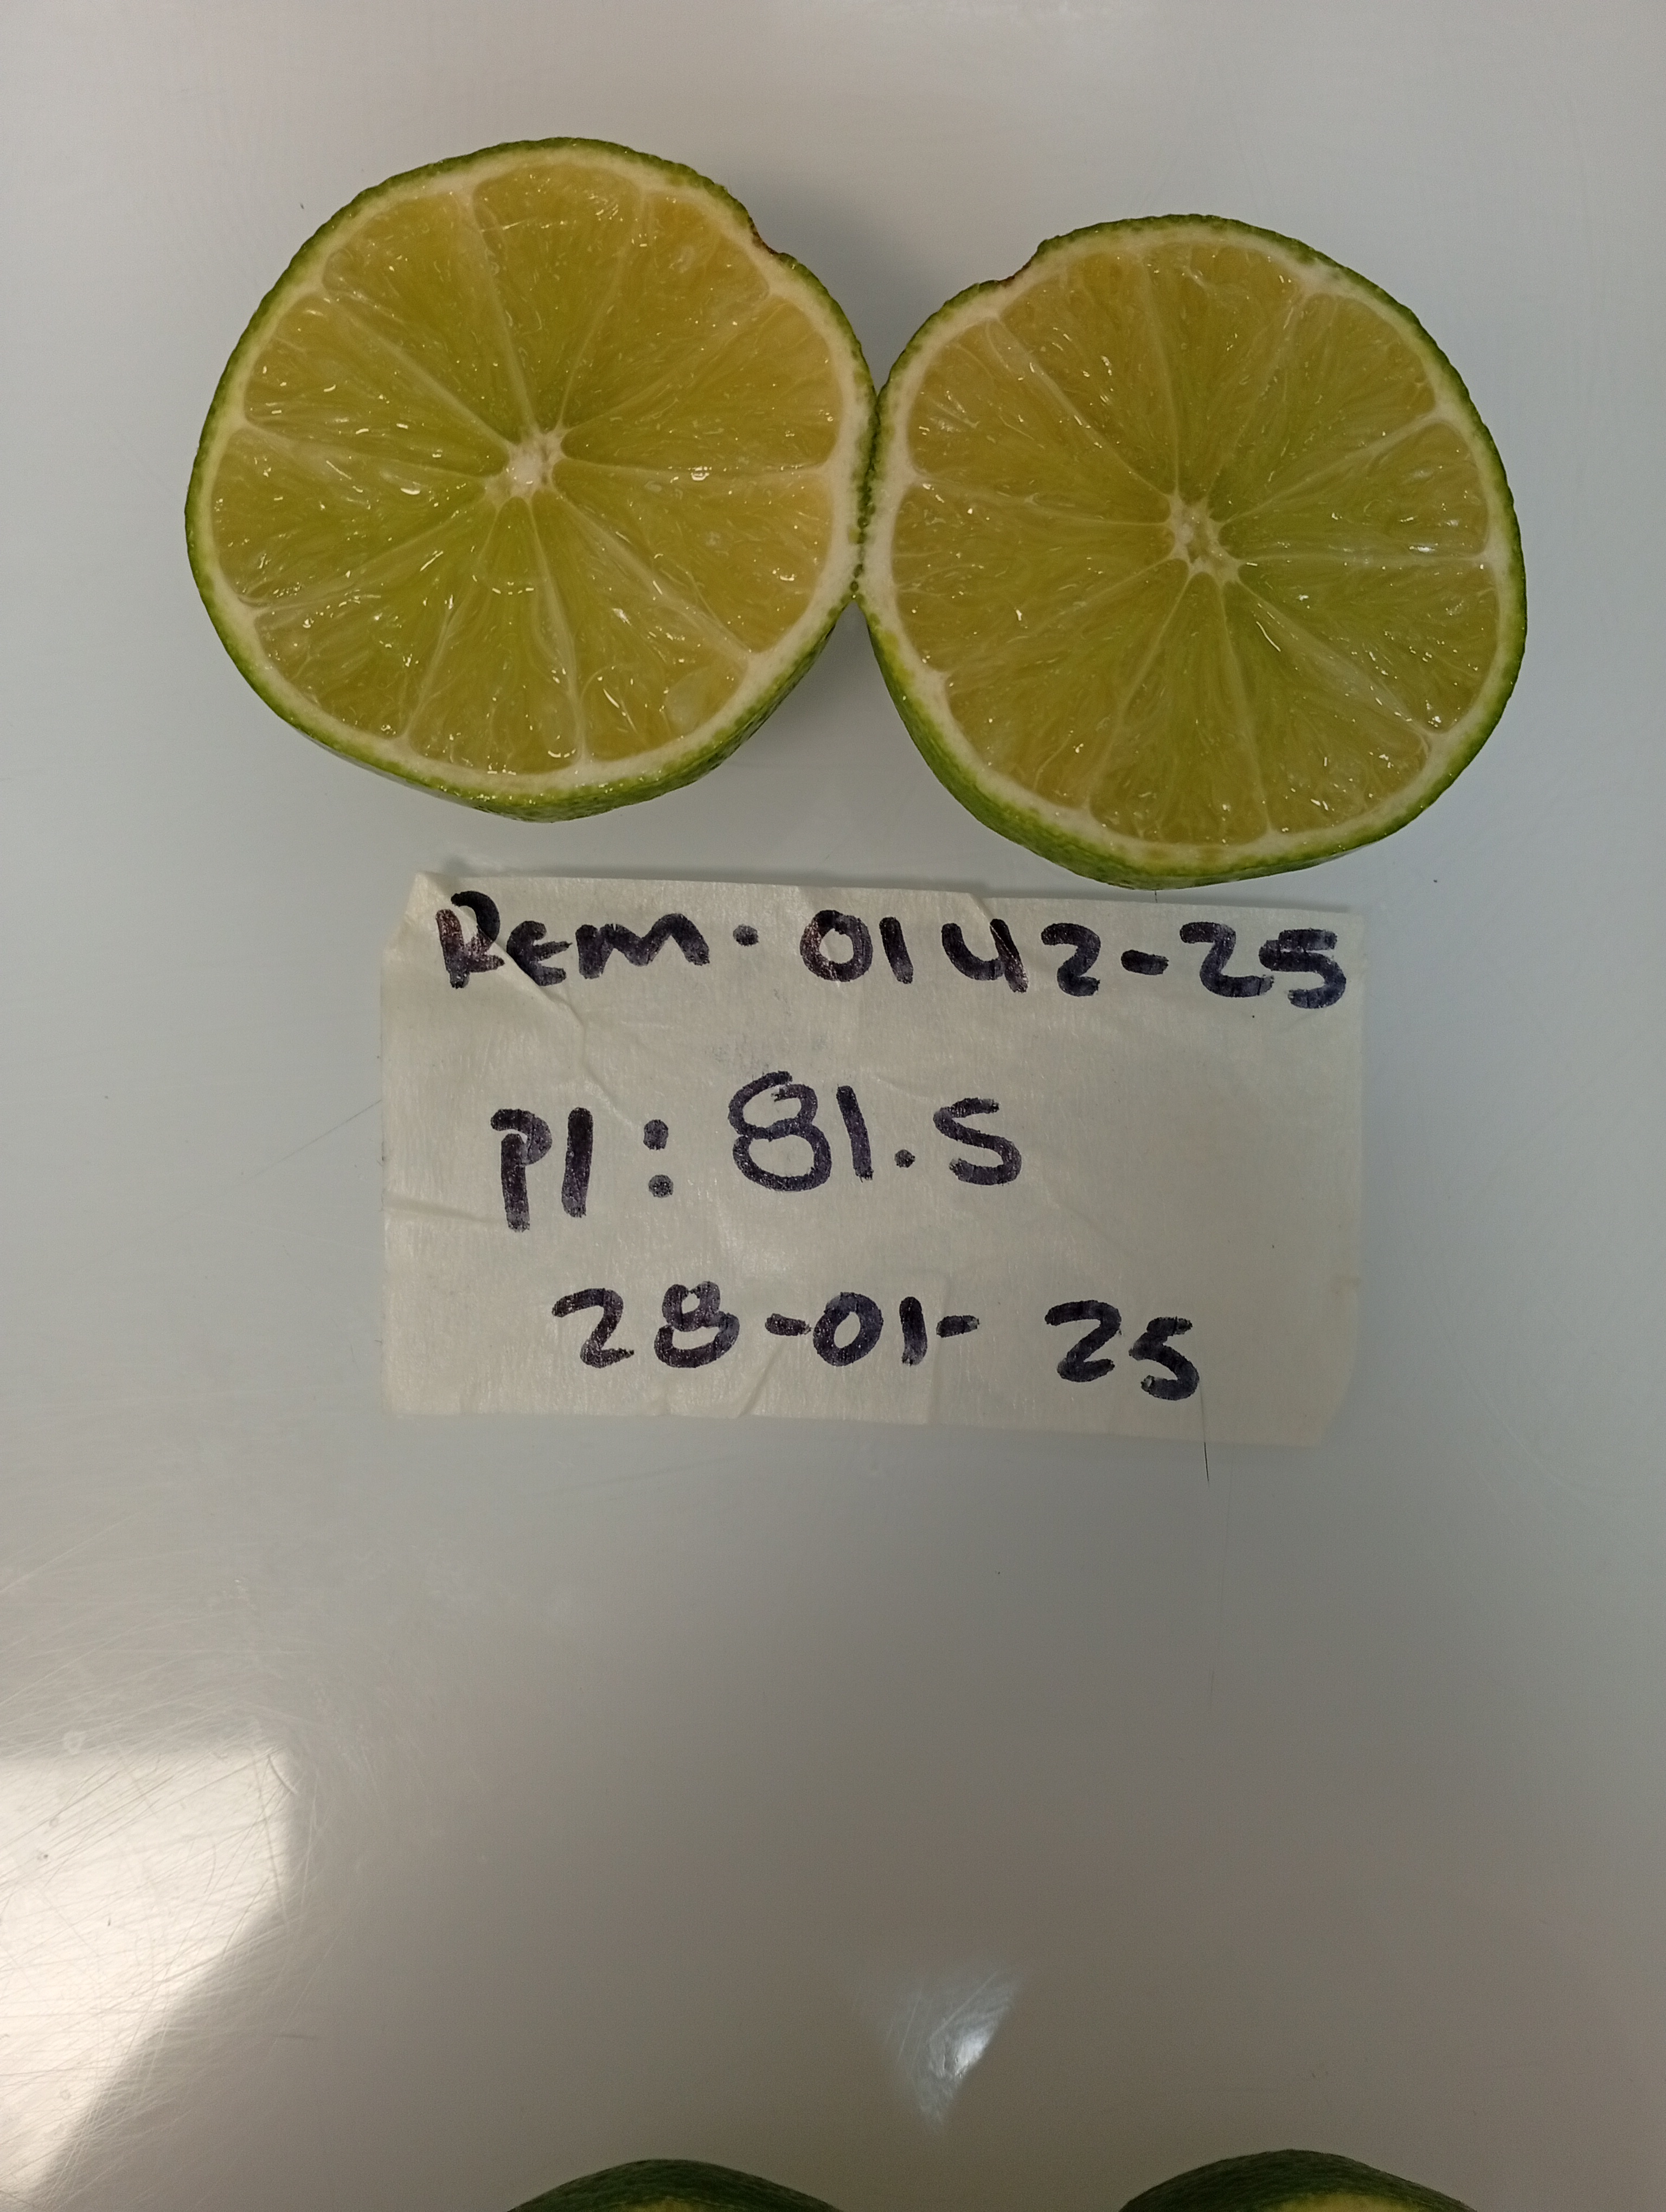 REM. 0142-25
PI: 81.5
28-01-25